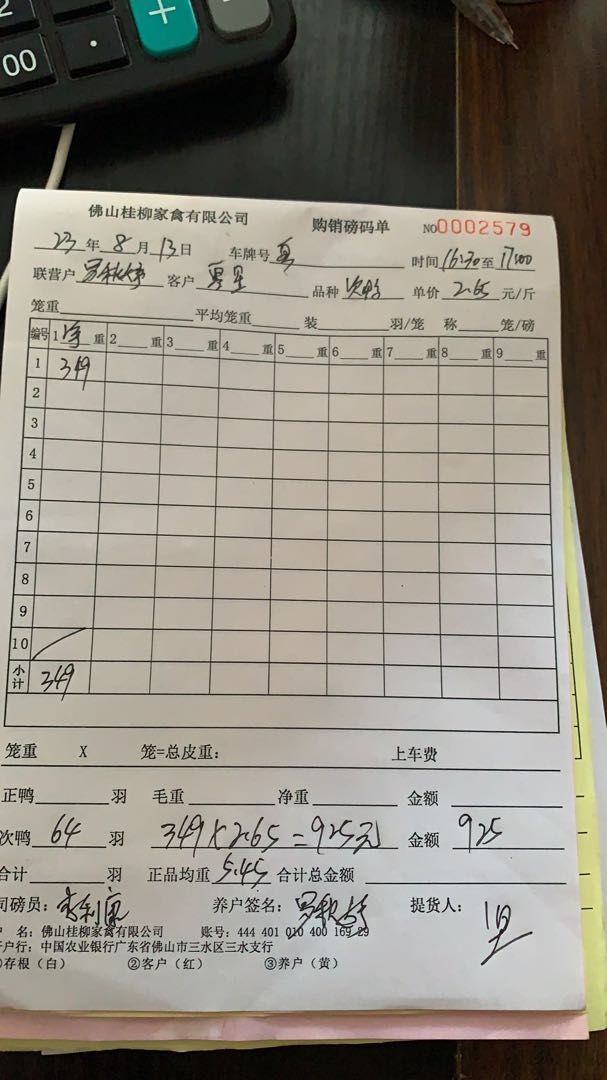 2
00
.
+
佛山桂柳家禽有限公司 购销磅码单 NO0002579
23年8月13日 车牌号 时间16:30至17:00
联营户 罗秋 客户 星 品种 次鸭 单价 2.65 元/斤
笼重 平均笼重 装 羽/笼 称 笼/磅
编号 1净重 2重 3重 4重 5重 6重 7重 8重 9重
1 349
2
3
4
5
6
7
8
9
10
小计 349
笼重 X 笼=总皮重: 上车费
正鸭 羽 毛重 净重 金额
次鸭 64 羽 349×2.65=925元 金额 925
合计 羽 正品均重 5.45 合计总金额
司磅员: 李利 养户签名: 罗秋 提货人:
名: 佛山桂柳家禽有限公司 账号: 444 401 010 400 169 29
户行: 中国农业银行广东省佛山市三水区三水支行
①存根(白) ②客户(红) ③养户(黄)